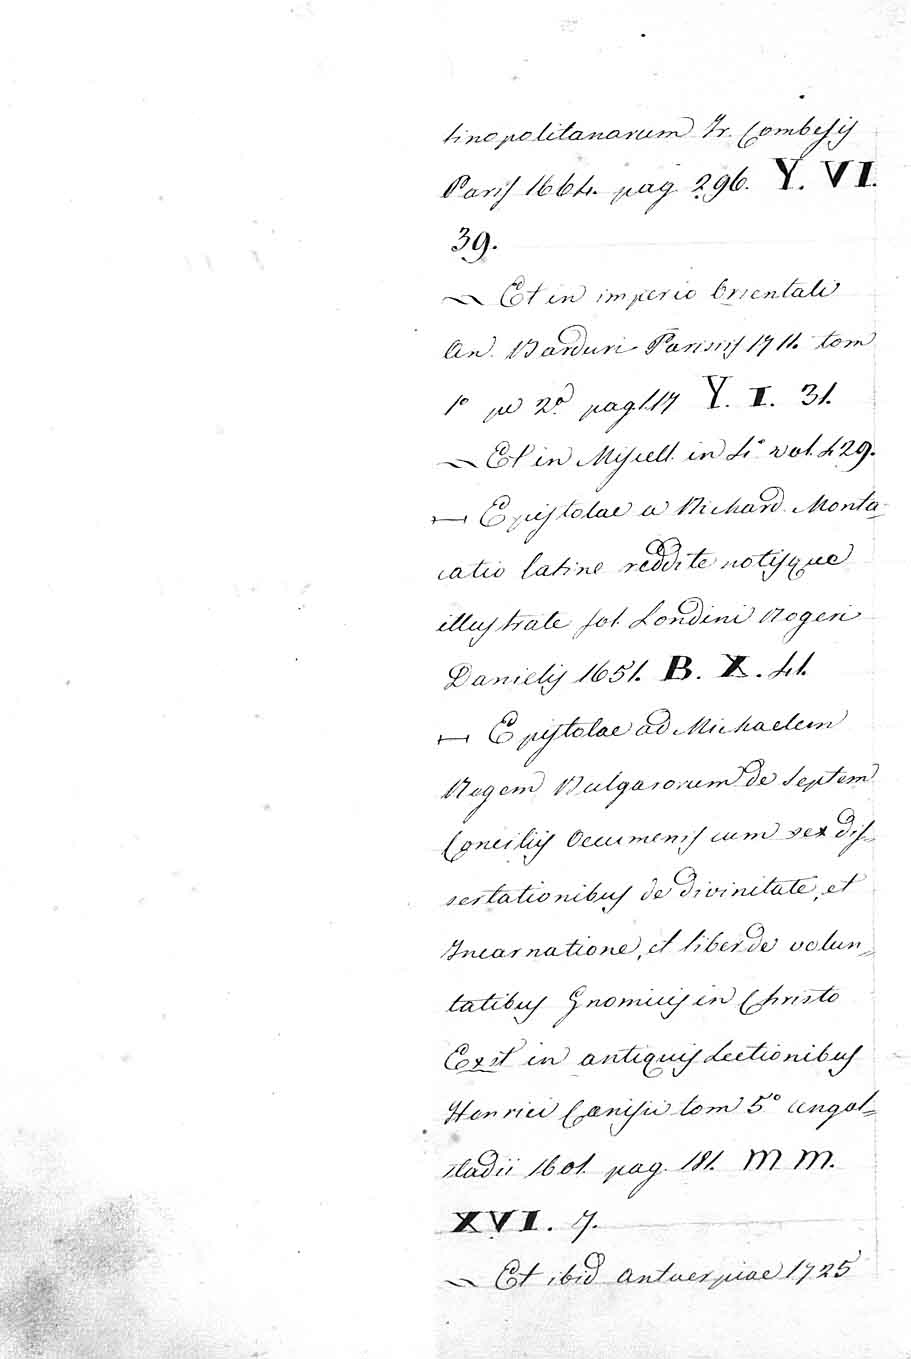 tinopolitanarum Fr. Combefis
Paris 1664. pag 296. Y. VI.
39.
Et in imperio Orientali
An. Banduri Parisiis 1711. tom
1º pe 2.ª pag.117 Y. I. 31.
Et in Miscell. in 4.º vol. 429.
Epistolae a Richard. Monta-
catio latine reddite notisque
illustrate fol. Londini Rogeri
Danielis 1651. B. X. 41.
Epistolae ad Michaelem
Regem Bulgarorum de septem
Conciliis Oecumenis cum sex dis=
sertationibus de divinitate, et
Incarnatione, et liber de volun=
tatibus Gnomicis in Christo
Exst in antiquis Lectionibus
Henrici Canisii tom 5º Ingol=
stadii 1601. pag. 181. MM.
XVI. 7.
Et ibid Antuerpiae 1725